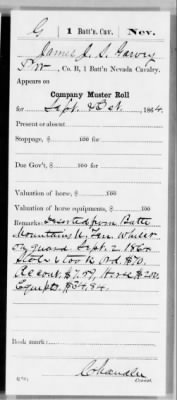 G | 1 Batt'n. Cav. | Nev.
James J. S. Garvey
Pvt, Co. B, 1 Batt'n Nevada Cavalry.
Appears on
Company Muster Roll
for Sept. & Oct., 1864.
Present or absent
Stoppage, $ 100 for
Due Gov't, $ 100 for
Valuation of horse, $ 100
Valuation of horse equipments, $ 100
Remarks: Deserted from Battle
Mountain U. Ter. whilst
on guard Sept. 2, 1864
Stole & took Ord. $70.
Accout. $7.09, Horse $200.
Equipts. $34.84.
Book mark:
Chandler
Copyist.